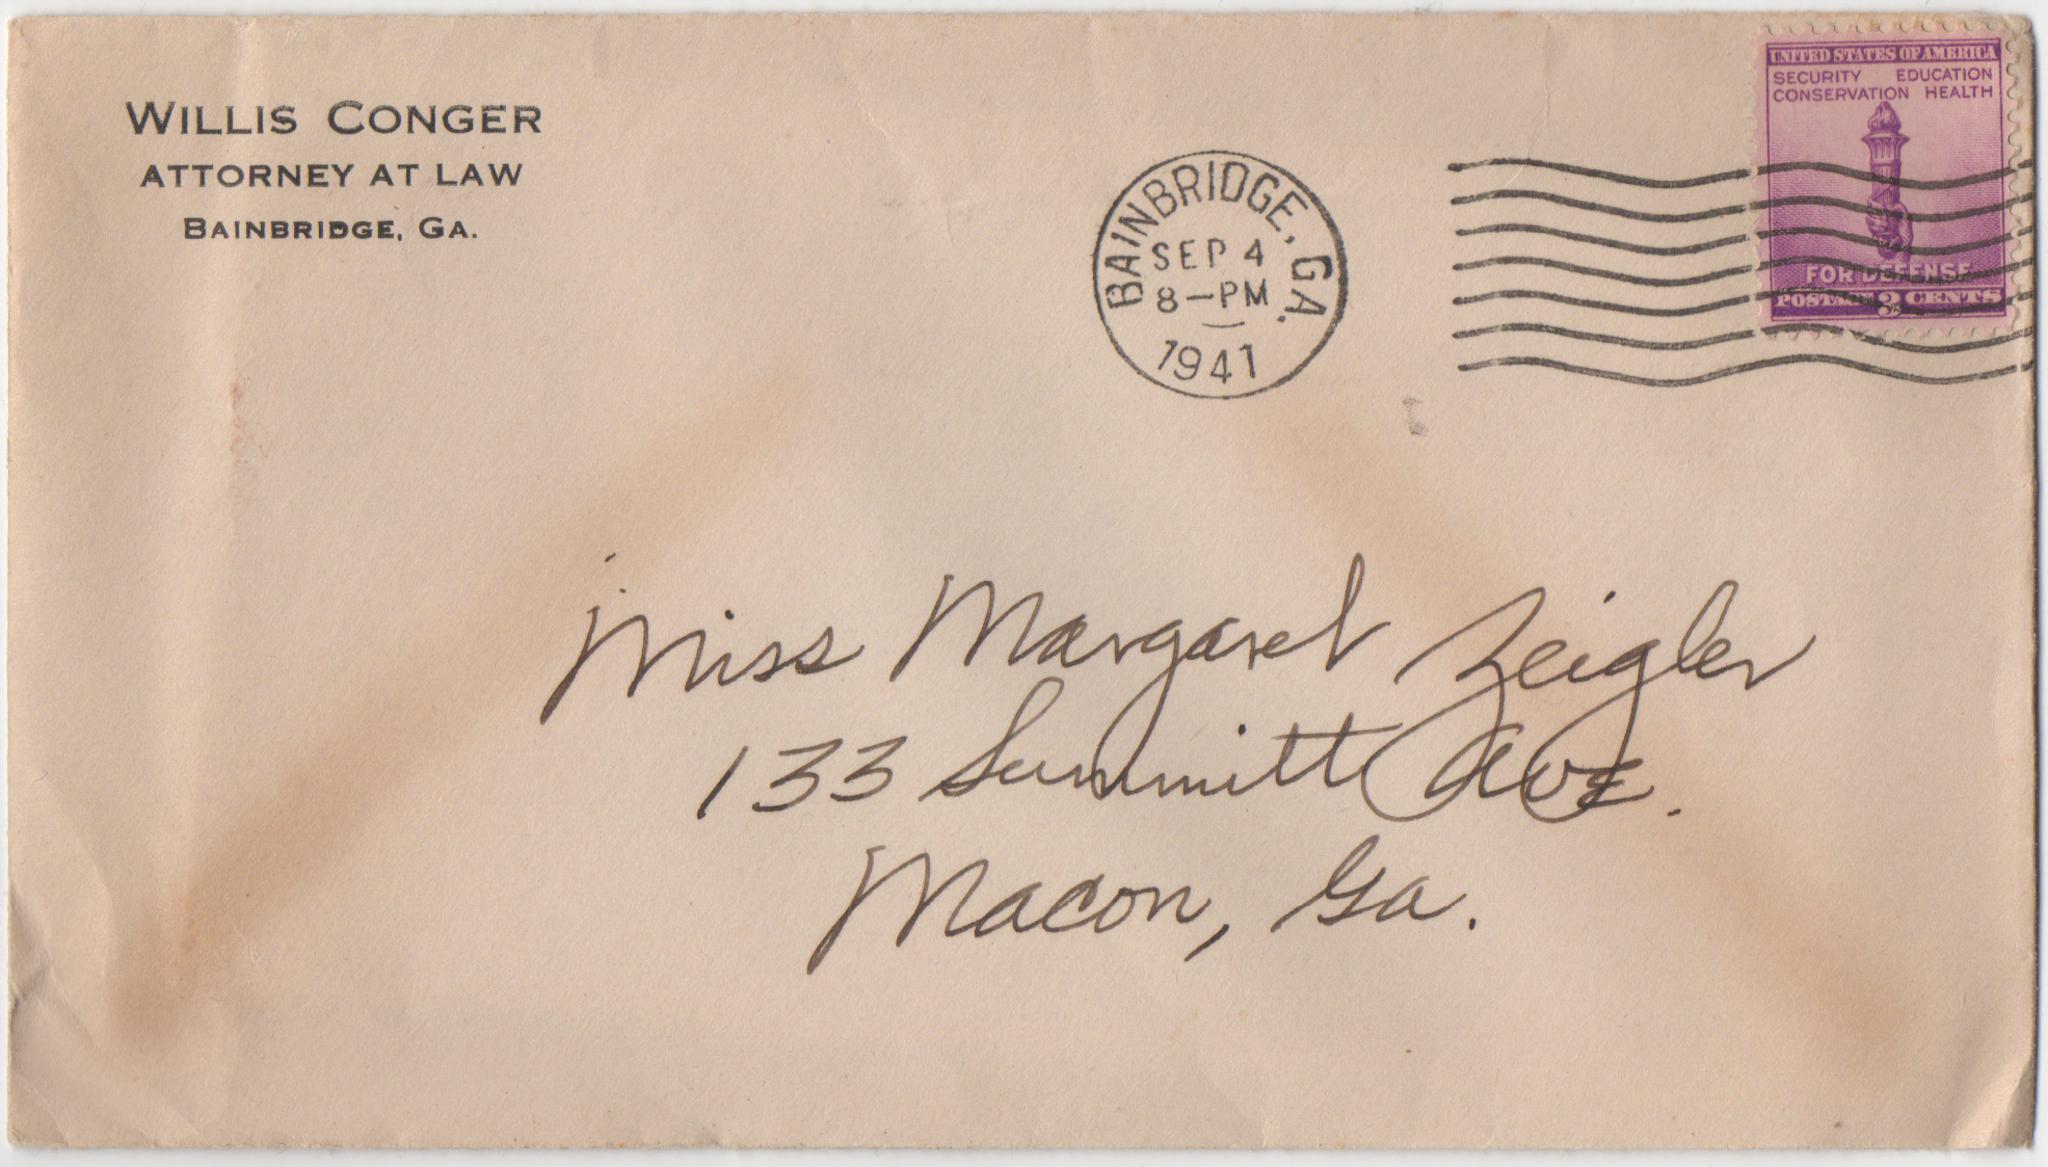 WILLIS CONGER
ATTORNEY AT LAW
BAINBRIDGE, GA.
BAINBRIDGE, GA.
SEP 4
8-PM
1941
UNITED STATES OF AMERICA
SECURITY EDUCATION
CONSERVATION HEALTH
FOR DEFENSE
POSTAGE 3 CENTS
Miss Margaret Zeigler
133 Summitt Ave.
Macon, Ga.